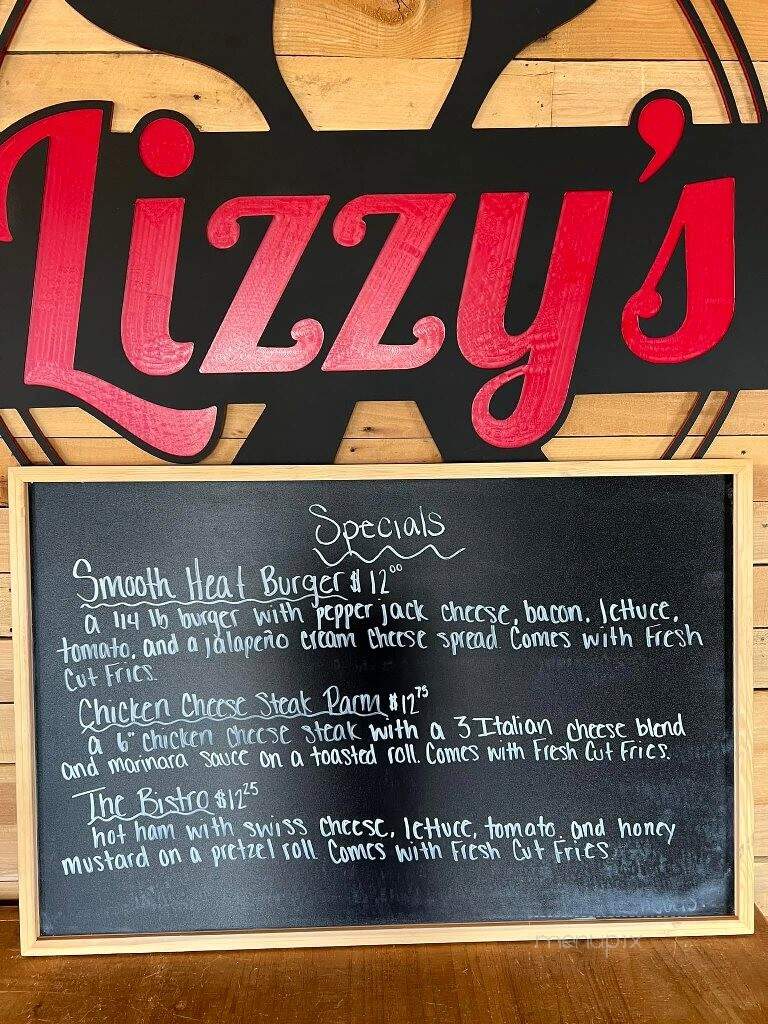 Lizzy's
Specials
Smooth Heat Burger $12.00
a 1/4 lb burger with pepper jack cheese, bacon, lettuce,
tomato, and a jalapeño cream cheese spread. Comes with Fresh
Cut Fries.
Chicken Cheese Steak Parm $12.75
a 6" chicken cheese steak with a 3 Italian cheese blend
and marinara sauce on a toasted roll. Comes with Fresh Cut Fries.
The Bistro $12.25
hot ham with swiss cheese, lettuce, tomato, and honey
mustard on a pretzel roll. Comes with Fresh Cut Fries.
menupix